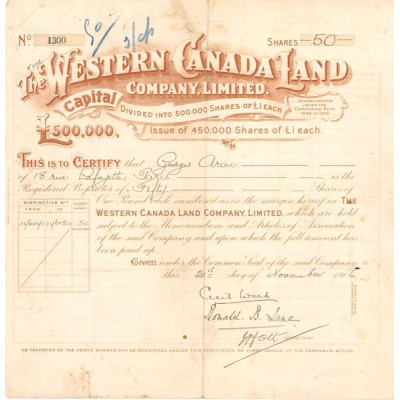 No 1300
SHARES 50
The WESTERN CANADA LAND
COMPANY, LIMITED.
Capital
DIVIDED INTO 500,000 SHARES OF £1 EACH
INCORPORATED
UNDER THE
COMPANIES ACTS
£500,000,
Issue of 450,000 Shares of £1 each.
THIS IS TO CERTIFY that Georges
of 18 rue Lafayette, Paris is the
Registered Proprietor of Fifty Shares of
One Pound each numbered as in the margin hereof in THE
WESTERN CANADA LAND COMPANY, LIMITED, which are held
subject to the Memorandum and Articles of Association
of the said Company and upon which the full amount has
been paid up.
DISTINCTIVE Nos
FROM TO
50
Given under the Common Seal of the said Company
this day of November
Cecil Ward
Ronald B. Lane
NO TRANSFER OF THE ABOVE SHARES CAN BE REGISTERED UNLESS THIS CERTIFICATE BE FIRST LODGED AT THE COMPANY'S OFFICE.